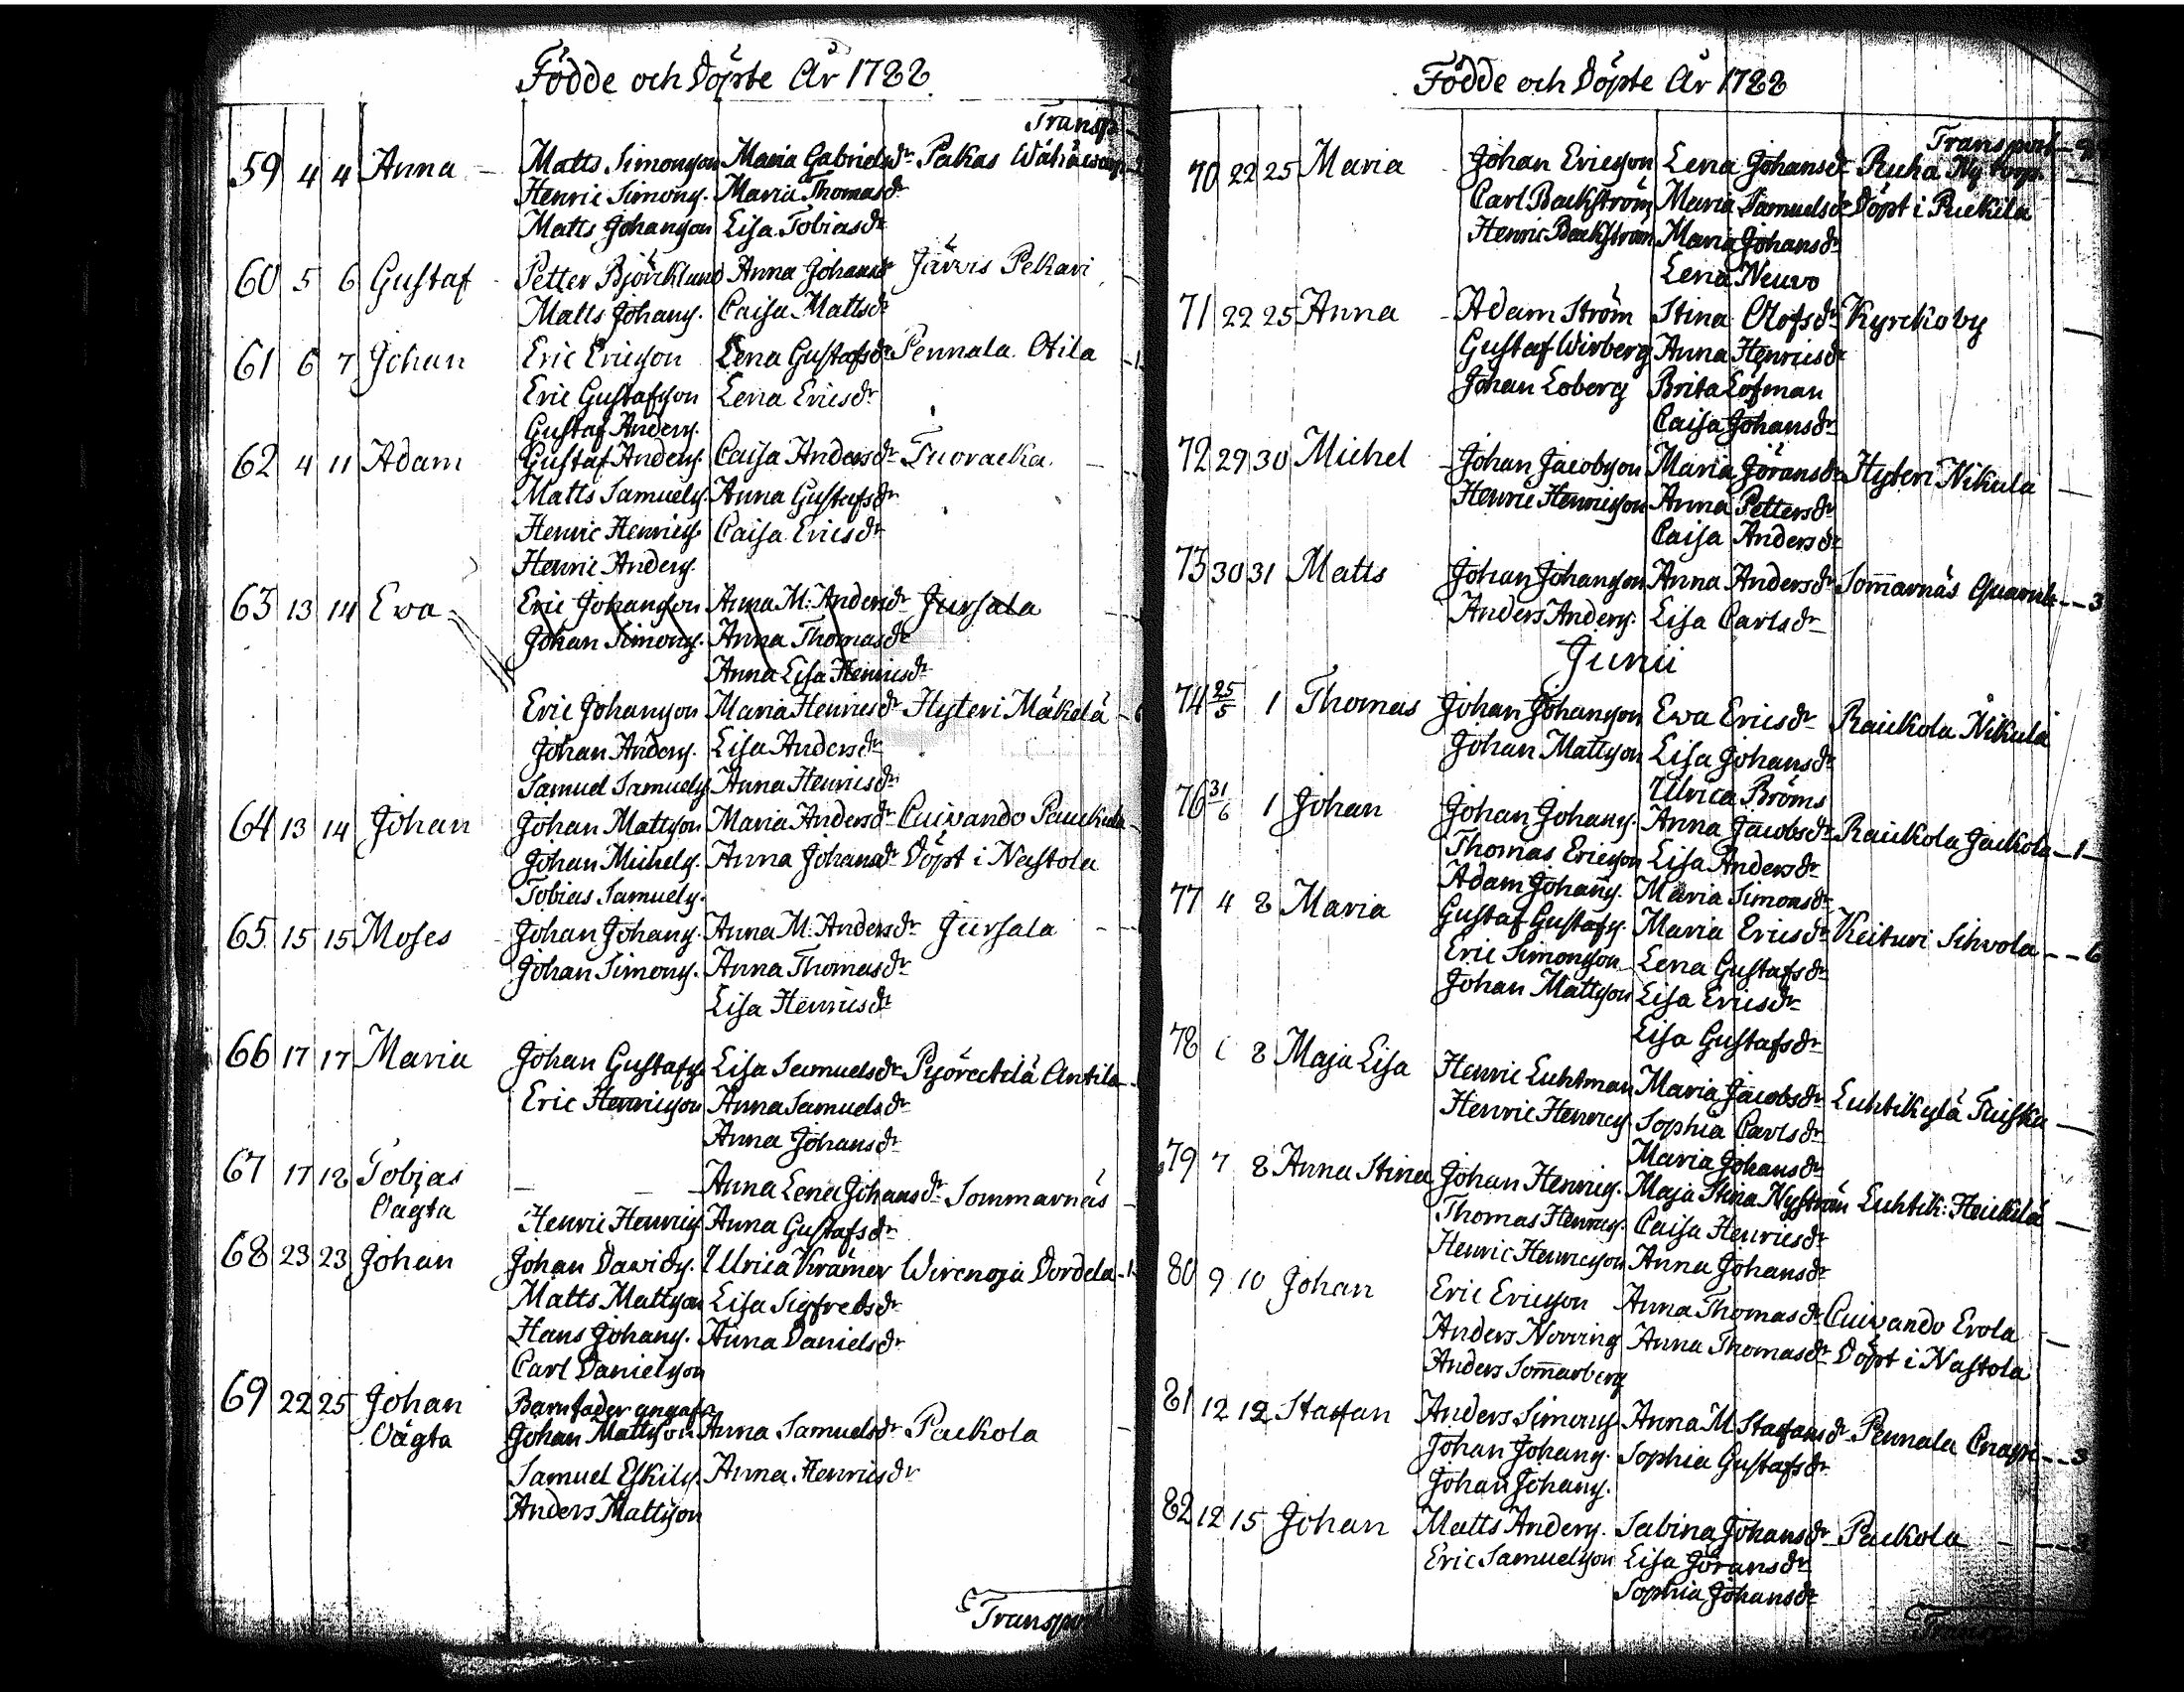 Födde och Döpte År 1788.
Transp
59 4 4 Anna - Matts Simonsson Maria Gabrielsdr Pakas
Henric Simons. Maria Thomasdr
Matts Johansson Lisa Tobiasdr
60 5 6 Gustaf - Petter Björklund Anna Johansdr Järvis Pekari
Matts Johans. Caisa Mattsdr
61 6 7 Johan Eric Ericsson Lena Gustafsdr Pennala Otila
Eric Gustafsson Lena Ericsdr
Gustaf Anders.
62 4 11 Adam Gustaf Anders. Caisa Andersdr Tuoracka
Matts Samuels. Anna Gustafsdr
Henric Henrics. Caisa Ericsdr
Henric Anders.
63 13 14 Ewa Eric Johansson Anna M: Andersdr Jursala
Johan Simons. Anna Thomasdr
Anna Lisa Henricsdr
Eric Johansson Maria Henricsdr Hyteri Mäkelä
Johan Anders. Lisa Andersdr
Samuel Samuels. Anna Henricsdr
64 13 14 Johan Johan Mattsson Maria Andersdr Cuivando
Johan Michels. Anna Johansdr Döpt i Nastola
Tobias Samuels.
65 15 15 Moses Johan Johans. Anna M: Andersdr Jursala
Johan Simons. Anna Thomasdr
Lisa Henricsdr
66 17 17 Maria Johan Gustafs. Lisa Samuelsdr Pyörcktilä Antila
Eric Henricsson Anna Samuelsdr
Anna Johansdr
67 17 18 Tobias Anna Lena Johansdr Sommarnäs
Oägta Henric Henrics. Anna Gustafsdr
68 23 23 Johan Johan Dawids. Ulrica Krämer Wirenoja Dordela
Matts Mattsson Lisa Sigfredsdr
Hans Johans. Anna Danielsdr
Carl Danielsson
69 22 25 Johan Barnfader angafs
Oägta Johan Mattsson Anna Samuelsdr Packola
Samuel Eskils. Anna Henricsdr
Anders Mattsson
Transport
Födde och Döpte År 1788
Transport
70 22 25 Maria Johan Ericsson Lena Johansdr Ruha Ny torp
Carl Backström Maria Samuelsdr Döpt i Puckila
Henric Backström Maria Johansdr
Lena Neuvo
71 22 25 Anna - Adam Ström Stina Olofsdr Kyrckoby
Gustaf Wirberg Anna Henricsdr
Johan Loberg Brita Löfman
Caisa Johansdr
72 29 30 Michel - Johan Jacobsson Maria Göransdr Hyteri Nikula
Henric Henricsson Anna Pettersdr
Caisa Andersdr
73 30 31 Matts Johan Johansson Anna Andersdr Somarnäs 3
Anders Anders. Lisa Carlsdr
Junii
74 25/5 1 Thomas Johan Johansson Ewa Ericsdr Raickola Nikula
Johan Mattsson Lisa Johansdr
Ulrica Bröms
76 31/6 1 Johan Johan Johans. Anna Jacobsdr Raickola Jackola - 1 -
Thomas Ericsson Lisa Andersdr
Adam Johans. Maria Simonsdr
77 4 8 Maria Gustaf Gustafs. Maria Ericsdr Keituri Sihvola - - 6
Eric Simonsson Lena Gustafsdr
Johan Mattsson Lisa Ericsdr
Lisa Gustafsdr
78 8 Maja Lisa Henric Luhtman Maria Jacobsdr Luhtikylä Tuiska
Henric Henrics. Sophia Carlsdr
Maria Johansdr
79 7 8 Anna Stina Johan Henrics. Maja Stina Nyström Luhtik: Heickilä
Thomas Henrics. Caisa Henricsdr
Henric Henricsson Anna Johansdr
80 9 10 Johan Eric Ericsson Anna Thomasdr Cuivando Erola
Anders Norring Anna Thomasdr Döpt i Nastola
Anders Somarberg
81 12 12 Staffan Anders Simons. Anna M Staffansdr Pennala - - 3
Johan Johans. Sophia Gustafsdr
Johan Johans.
82 12 15 Johan Matts Anders. Sabina Johansdr Packola
Eric Samuelsson Lisa Göransdr
Sophia Johansdr